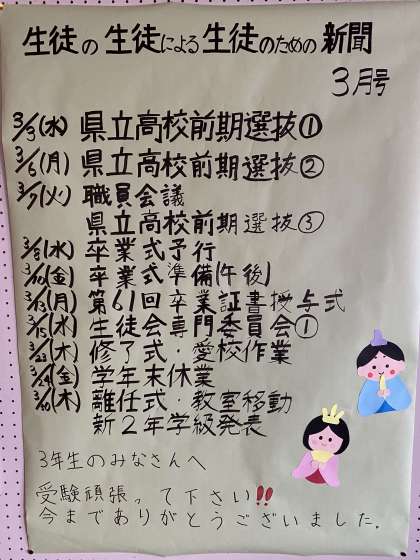 生徒の生徒による生徒のための新聞
3月号
3/3(水) 県立高校前期選抜①
3/6(月) 県立高校前期選抜②
3/7(火) 職員会議
県立高校前期選抜③
3/8(水) 卒業式予行
3/10(金) 卒業式準備(午後)
3/13(月) 第61回卒業証書授与式
3/15(水) 生徒会専門委員会①
3/23(木) 修了式・愛校作業
3/24(金) 学年末休業
3/30(木) 離任式・教室移動
新2年学級発表
3年生のみなさんへ
受験頑張って下さい!!
今までありがとうございました.